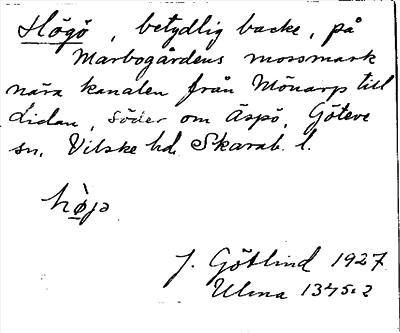 Högö, betydlig backe, på
Marbogårdens mossmark
nära kanalen från Mönarp till
Lidan, söder om Äspö, Göteve
sn. Vilske hd. Skarab. l.
hø̀jə
J. Götlind 1927
Ulma 1345:2